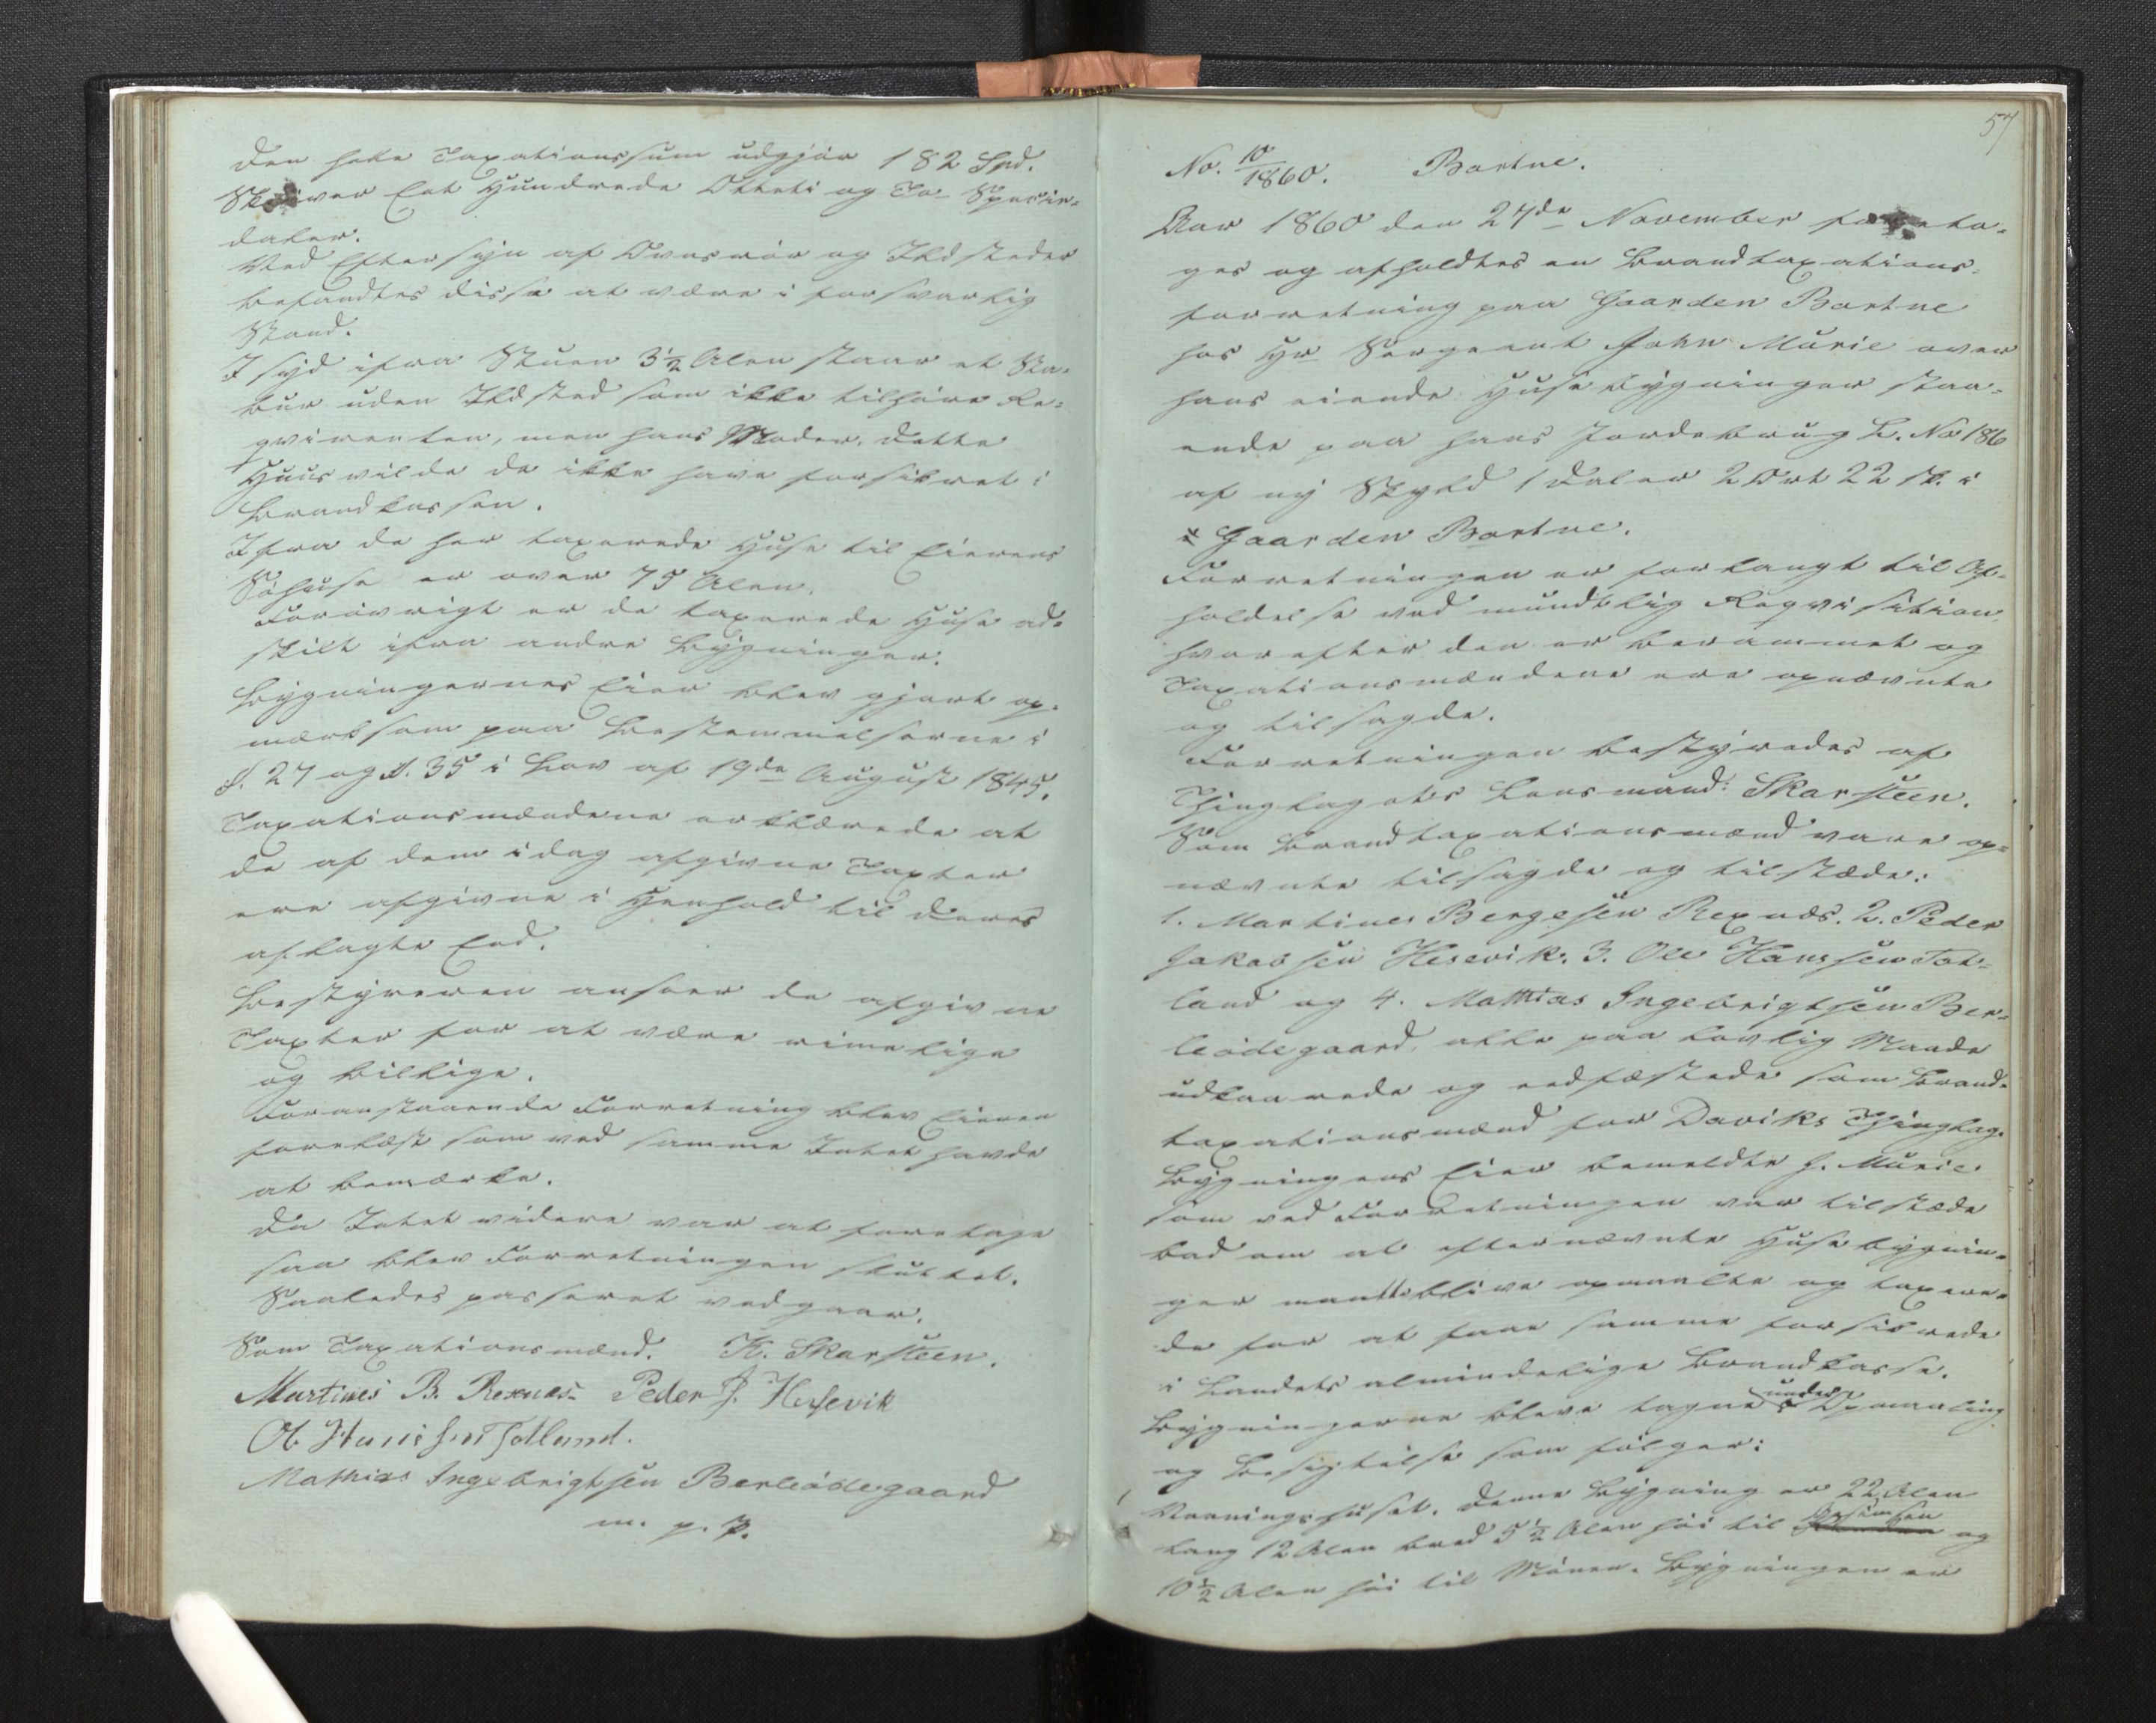 den hele Taxationssum udgjør 182 Spd.
Skriver Eet Hundrede Otteti og To Specie-
daler.
Ved Eftersyn af Ovnsrør og Ildsteder
befandtes disse at være i forsvarlig
Stand.
I syd ifra Stuen 3½ Alen staar et Sta-
bur uden Ildsted som ikke tilhøre Re-
qvirenten, men hans Moder. dette
Huus vilde de ikke have forsikret i
Brandkassen.
Ifra de her taxerede Huse til Eierens
Søhuse er over 75 Alen.
Forøvrigt er de taxerede Huse ad-
skilt ifra andre Bygninger.
Bygningernes Eier blev gjort op-
mærksom paa Bestemmelserne i
§. 27 og §. 35 i Lov af 19de August 1845.
Taxationsmændene erklærede at
de af dem idag afgivne Taxter
ere afgivne i Henhold til deres
aflagte Eed.
Bestyreren anseer de afgivne
Taxter for at være rimelige
og billige.
Foranstaaende Forretning blev Eieren
forelæst som ved samme Intet havde
at bemærke.
Da Intet videre var at foretage
saa blev Forretningen sluttet.
Saaledes passeret vedgaar.
Som Taxationsmænd. K. Skarsteen.
Martines B. Rexnæs. Peder J. Hessevik
Ol Hanssen Totland.
Mathias Ingebrigtsen Berleødegaard
m. p. P.
57
No. 10/1860. Bortne.
Aar 1860 den 27de November foreta-
ges og afholdtes en Brandtaxations-
forretning paa Gaarden Bortne
hos Hr Sergeant John Murie over
hans eiende Husebygninger staa-
ende paa hans Jordebrug L. No 186
af ny Skyld 1 Daler 2 Ort 22 sk. i
Gaarden Bortne.
Forretningen er forlangt til Af-
holdelse ved mundtlig Reqvisition,
hvorefter den er berammet og
Taxationsmændene ere opnævnte
og tilsagde.
Forretningen bestyredes af
Thinglagets Lensmand: Skarsteen.
Som Brandtaxationsmænd vare op-
nævnte tilsagde og tilstæde:
1. Martines Bergesen Rexnæs. 2. Peder
Jakobsen Hesevik. 3. Ole Hanssen Tot-
land og 4. Mathias Ingebrigtsen Ber-
leødegaard, alle paa lovlig Maade
udkaarede og eedfæstede som Brand-
taxationsmænd for Daviks Thinglag.
Bygningens Eier bemeldte J. Murie
som ved Forretningen var tilstæde
bad om at efternævnte Husebygnin-
ger maatte blive opmaalte og taxere-
de for at faae samme forsikrede
i Landets almindelige Brandkasse.
Bygningerne bleve tagne under Opmaaling
og Besigtelse som følger:
Vaaningshuset. Denne Bygning er 22 Alen
lang 12 Alen bred 5½ Alen høi til Gesimsen og
10½ Alen høi til Mønen. Bygningen er